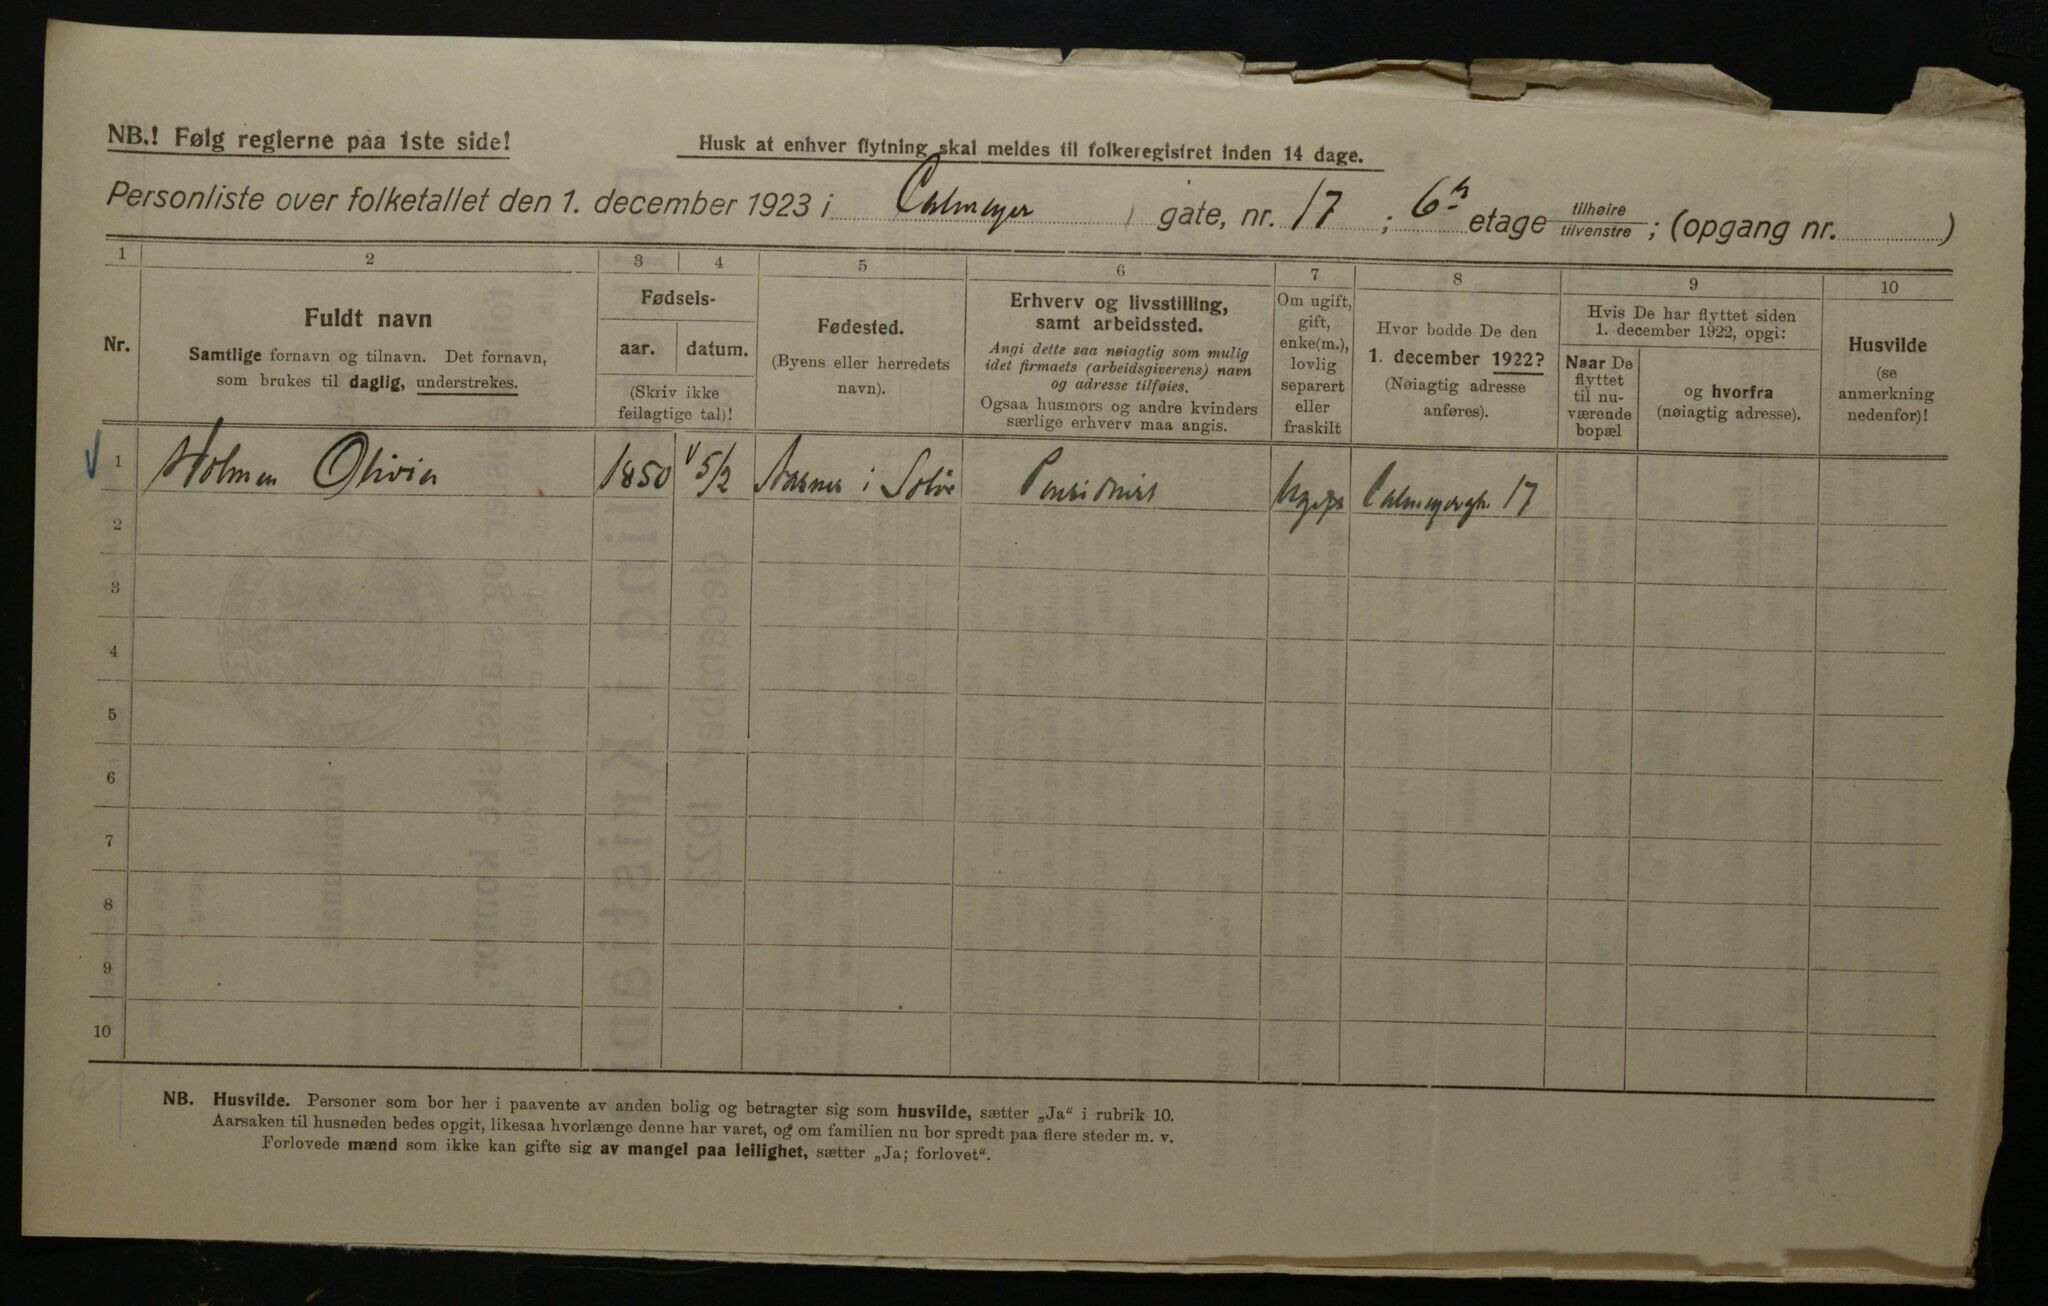 NB.! Følg reglerne paa 1ste side!
Husk at enhver flytning skal meldes til folkeregistret inden 14 dage.
Personliste over folketallet den 1. december 1923 i Calmeyer gate, nr. 17 ; 6te etage tilhøire/tilvenstre ; (opgang nr. )
1 2 3 4 5 6 7 8 9 10
Nr.
Fuldt navn
Samtlige fornavn og tilnavn. Det fornavn,
som brukes til daglig, understrekes.
Fødsels-
aar. datum.
(Skriv ikke
feilagtige tal)!
Fødested.
(Byens eller herredets
navn).
Erhverv og livsstilling,
samt arbeidssted.
Angi dette saa nøiagtig som mulig
idet firmaets (arbeidsgiverens) navn
og adresse tilføies.
Ogsaa husmors og andre kvinders
særlige erhverv maa angis.
Om ugift,
gift,
enke(m.),
lovlig
separert
eller
fraskilt
Hvor bodde De den
1. december 1922?
(Nøiagtig adresse
anføres).
Hvis De har flyttet siden
1. december 1922, opgi:
Naar De
flyttet
til nu-
værende
bopæl
og hvorfra
(nøiagtig adresse).
Husvilde
(se
anmerkning
nedenfor)!
1 Holmen Olivia 1850 5/2 i Solør Pensionist Ugift Calmeyergt. 17
2
3
4
5
6
7
8
9
10
NB. Husvilde. Personer som bor her i paavente av anden bolig og betragter sig som husvilde, sætter „Ja“ i rubrik 10.
Aarsaken til husnøden bedes opgit, likesaa hvorlænge denne har varet, og om familien nu bor spredt paa flere steder m. v.
Forlovede mænd som ikke kan gifte sig av mangel paa leilighet, sætter „Ja; forlovet“.